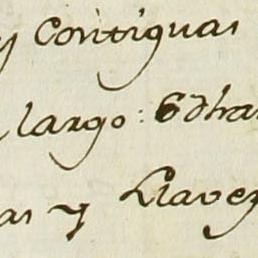 y Contiguas
largo: 6 dha
as y Llavez